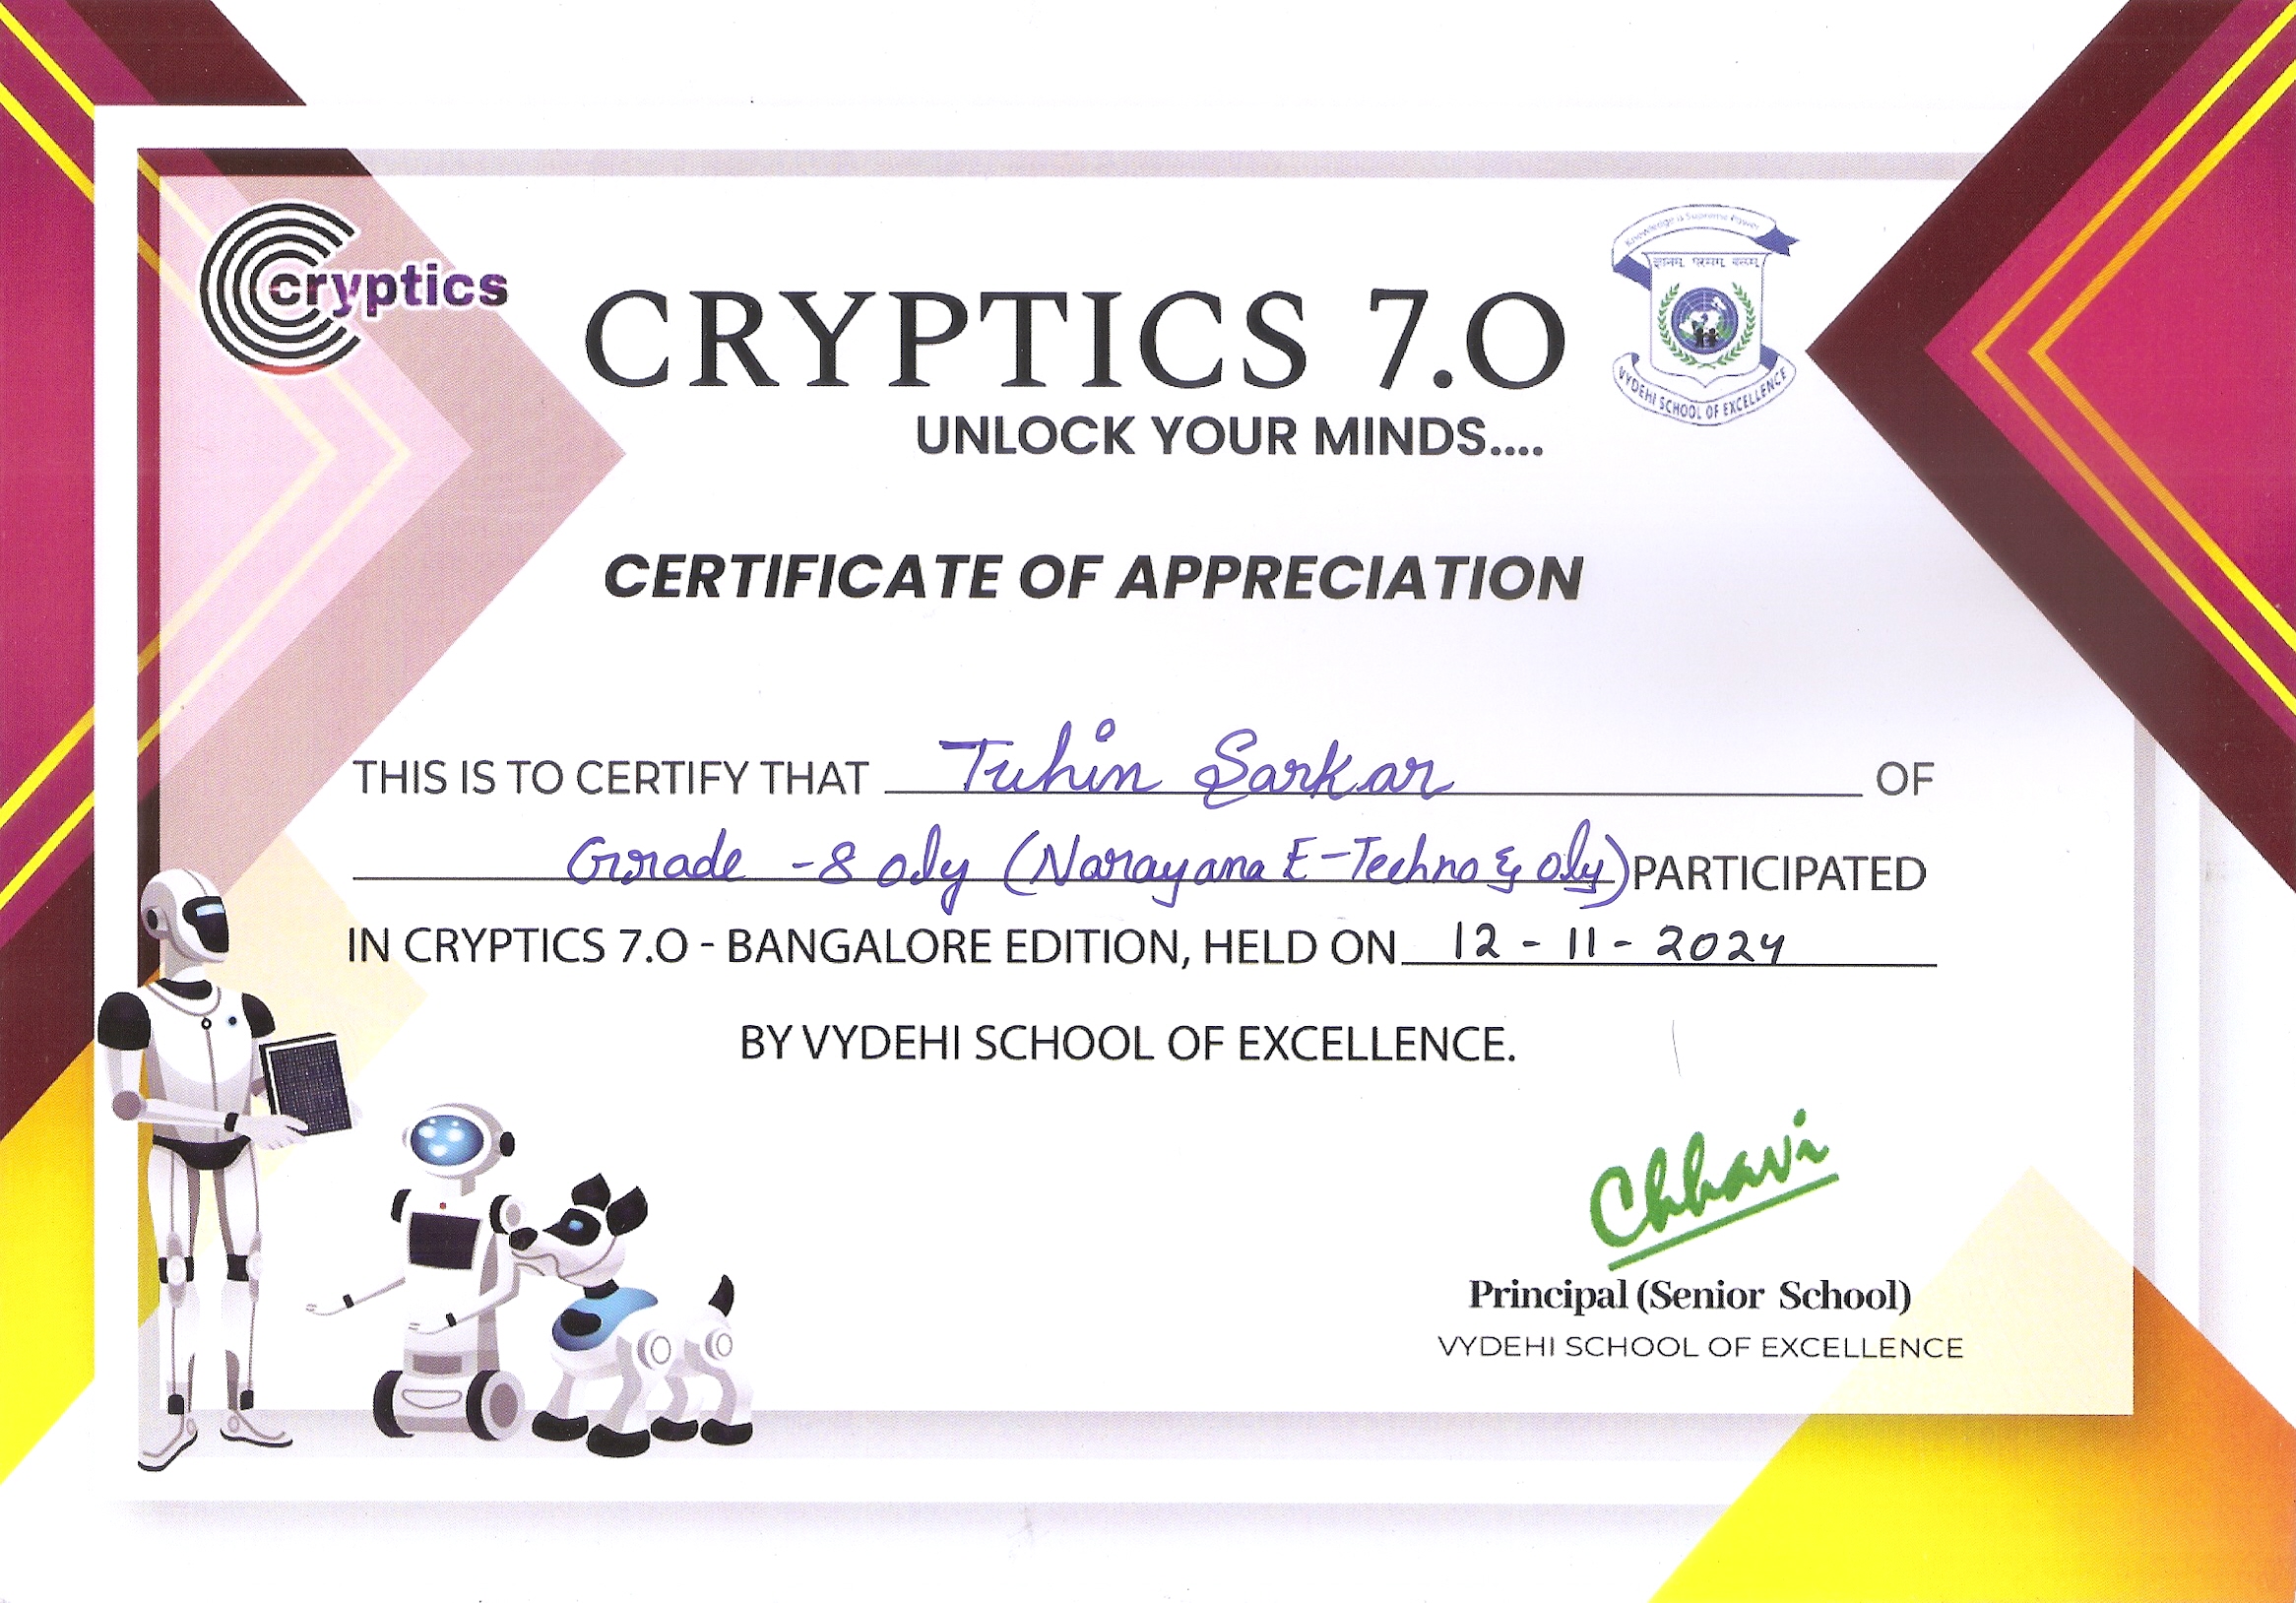 cryptics
Knowledge is Supreme Power
CRYPTICS 7.O
VYDEHI SCHOOL OF EXCELLENCE
UNLOCK YOUR MINDS....
CERTIFICATE OF APPRECIATION
THIS IS TO CERTIFY THAT Tuhin Sarkar OF
Grade -8 oly (Narayana E-Techno & oly) PARTICIPATED
IN CRYPTICS 7.O - BANGALORE EDITION, HELD ON 12 - 11 - 2024
BY VYDEHI SCHOOL OF EXCELLENCE.
Chhavi
Principal (Senior School)
VYDEHI SCHOOL OF EXCELLENCE